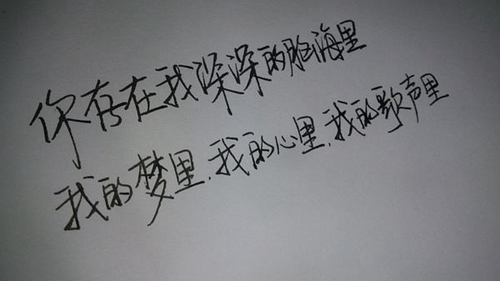 你存在我深深的脑海里
我的梦里.我的心里.我的歌声里